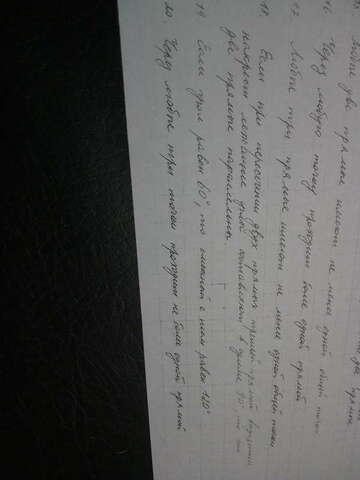 Любые две прямые имеют не менее одной общей точки
16. Через любую точку проходит более одной прямой
17. Любые три прямые имеют не менее одной общей точки
18. Если при пересечении двух прямых третьей прямой внутренние
накрест лежащие углы составляют в сумме 90°, то эти
две прямые параллельны.
19. Если угол равен 60°, то смежный с ним равен 120°
20. Через любые три точки проходит не более одной прямой